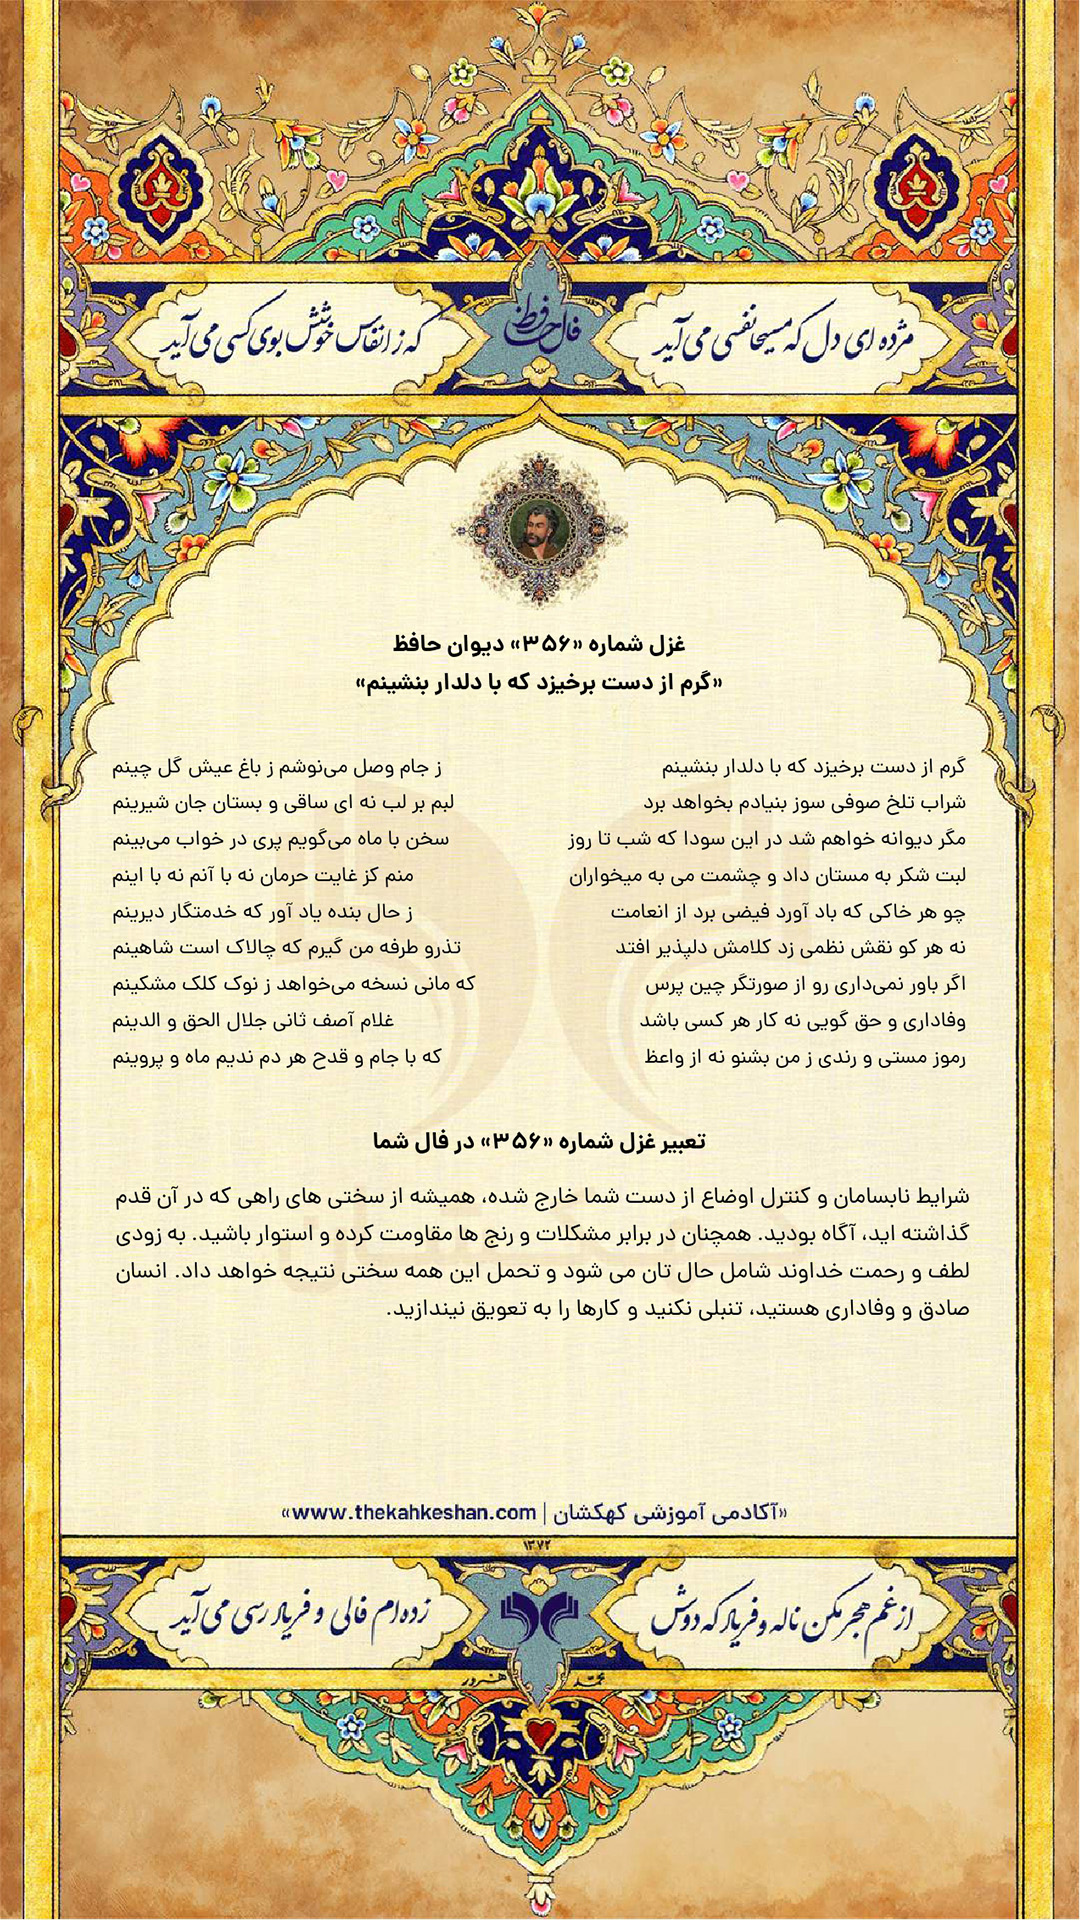 مژده ای دل که مسیحا نفسی می آید
فال حافظ
که ز انفاس خوشش بوی کسی می آید
غزل شماره «۳۵۶» دیوان حافظ
«گرم از دست برخیزد که با دلدار بنشینم»
گرم از دست برخیزد که با دلدار بنشینم ز جام وصل می‌نوشم ز باغ عیش گل چینم
شراب تلخ صوفی سوز بنیادم بخواهد برد لبم بر لب نه ای ساقی و بستان جان شیرینم
مگر دیوانه خواهم شد در این سودا که شب تا روز سخن با ماه می‌گویم پری در خواب می‌بینم
لبت شکر به مستان داد و چشمت می به میخواران منم کز غایت حرمان نه با آنم نه با اینم
چو هر خاکی که باد آورد فیضی برد از انعامت ز حال بنده یاد آور که خدمتگار دیرینم
نه هر کو نقش نظمی زد کلامش دلپذیر افتد تذرو طرفه من گیرم که چالاک است شاهینم
اگر باور نمی‌داری رو از صورتگر چین پرس که مانی نسخه می‌خواهد ز نوک کلک مشکینم
وفاداری و حق گویی نه کار هر کسی باشد غلام آصف ثانی جلال الحق و الدینم
رموز مستی و رندی ز من بشنو نه از واعظ که با جام و قدح هر دم ندیم ماه و پروینم
تعبیر غزل شماره «۳۵۶» در فال شما
شرایط نابسامان و کنترل اوضاع از دست شما خارج شده، همیشه از سختی های راهی که در آن قدم
گذاشته اید، آگاه بودید. همچنان در برابر مشکلات و رنج ها مقاومت کرده و استوار باشید. به زودی
لطف و رحمت خداوند شامل حال تان می شود و تحمل این همه سختی نتیجه خواهد داد. انسان
صادق و وفاداری هستید، تنبلی نکنید و کارها را به تعویق نیندازید.
«آکادمی آموزشی کهکشان | www.thekahkeshan.com»
۱۳۷۲
از غم هجر مکن ناله و فریاد که دوش
زده ام فالی و فریاد رسی می آید
محمد هنرور